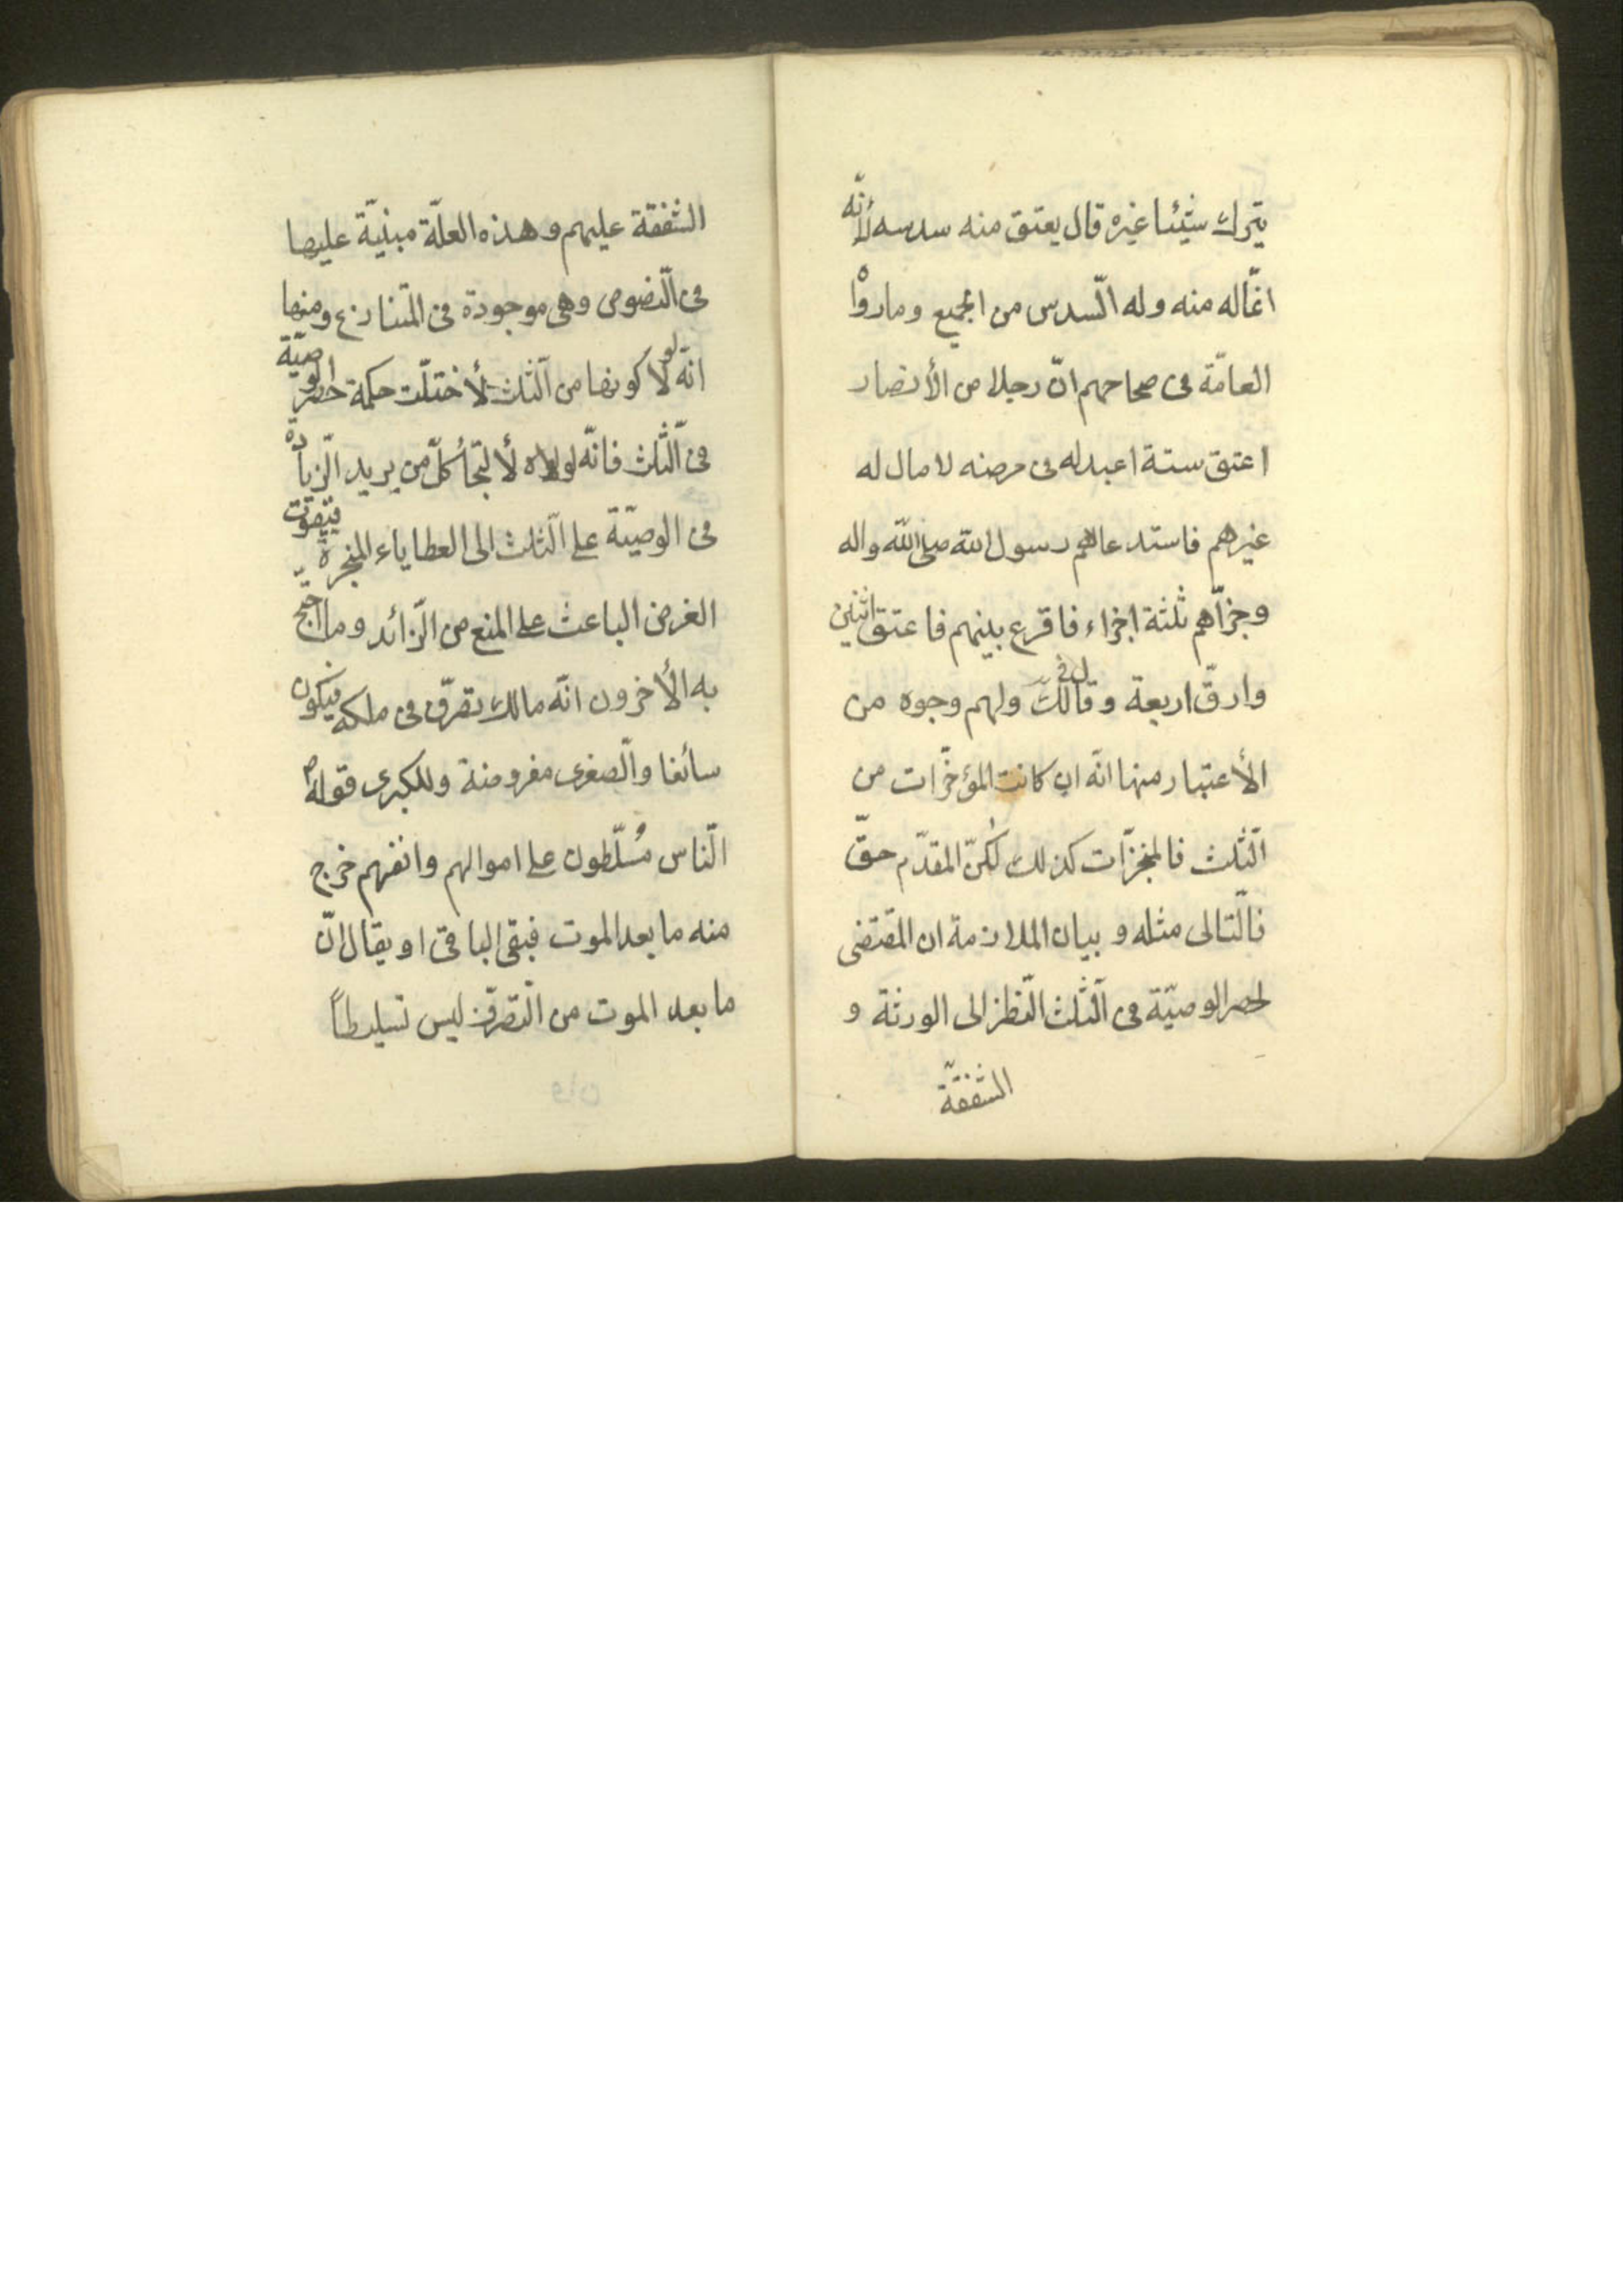 يترك شيئا غيره قال يعتق منه سدسه لأنّه
انّما له منه وله السّدس من الجميع وما رواه
العامّة فى صحاحهم انّ رجلا من الأنصار
اعتق ستة اعبد له فى مرضه لا مال له
غيرهم فاستدعاهم رسول الله صلى الله واله
وجزّاهم ثلثة اجزاء فاقرع بينهم فاعتق اثنين
وارقّ اربعة و ولهم وجوه من
الأعتبار منها انّه ان كانت المؤخّرات من
الثّلث فالمنجزّات كذلك لكنّ المقدّم حقّ
فالتّالى مثله و بيان الملازمة ان المقتضى
لحصر الوصيّة فى الثّلث النّظر الى الورثة و
الشفقة
الشفقة عليهم وهذه العلّة مبنيّة عليها
فى النّصوص وهى موجودة فى المتنازع ومنها
انّه لولا كونها من الثّلث لأختلّت حكمة حصر الوصيّة
فى الثّلث فانّه لولاه لألتجأ كلّ من يريد الزّيادة
فى الوصيّة على الثّلث الى العطاياء المنجزة فيفوت
الغرض الباعث على المنع من الزّائد وما احتجّ
به الأخرون انّه مالك تصرّف فى ملكه فيكون
سائغا والصّغرى مفروضة وللكبرى قوله ص
النّاس مُسلّطون على اموالهم وانفسهم خرج
منه ما بعد الموت فبقى الباقى او يقال انّ
ما بعد الموت من التّصرّف ليس تسليطاً